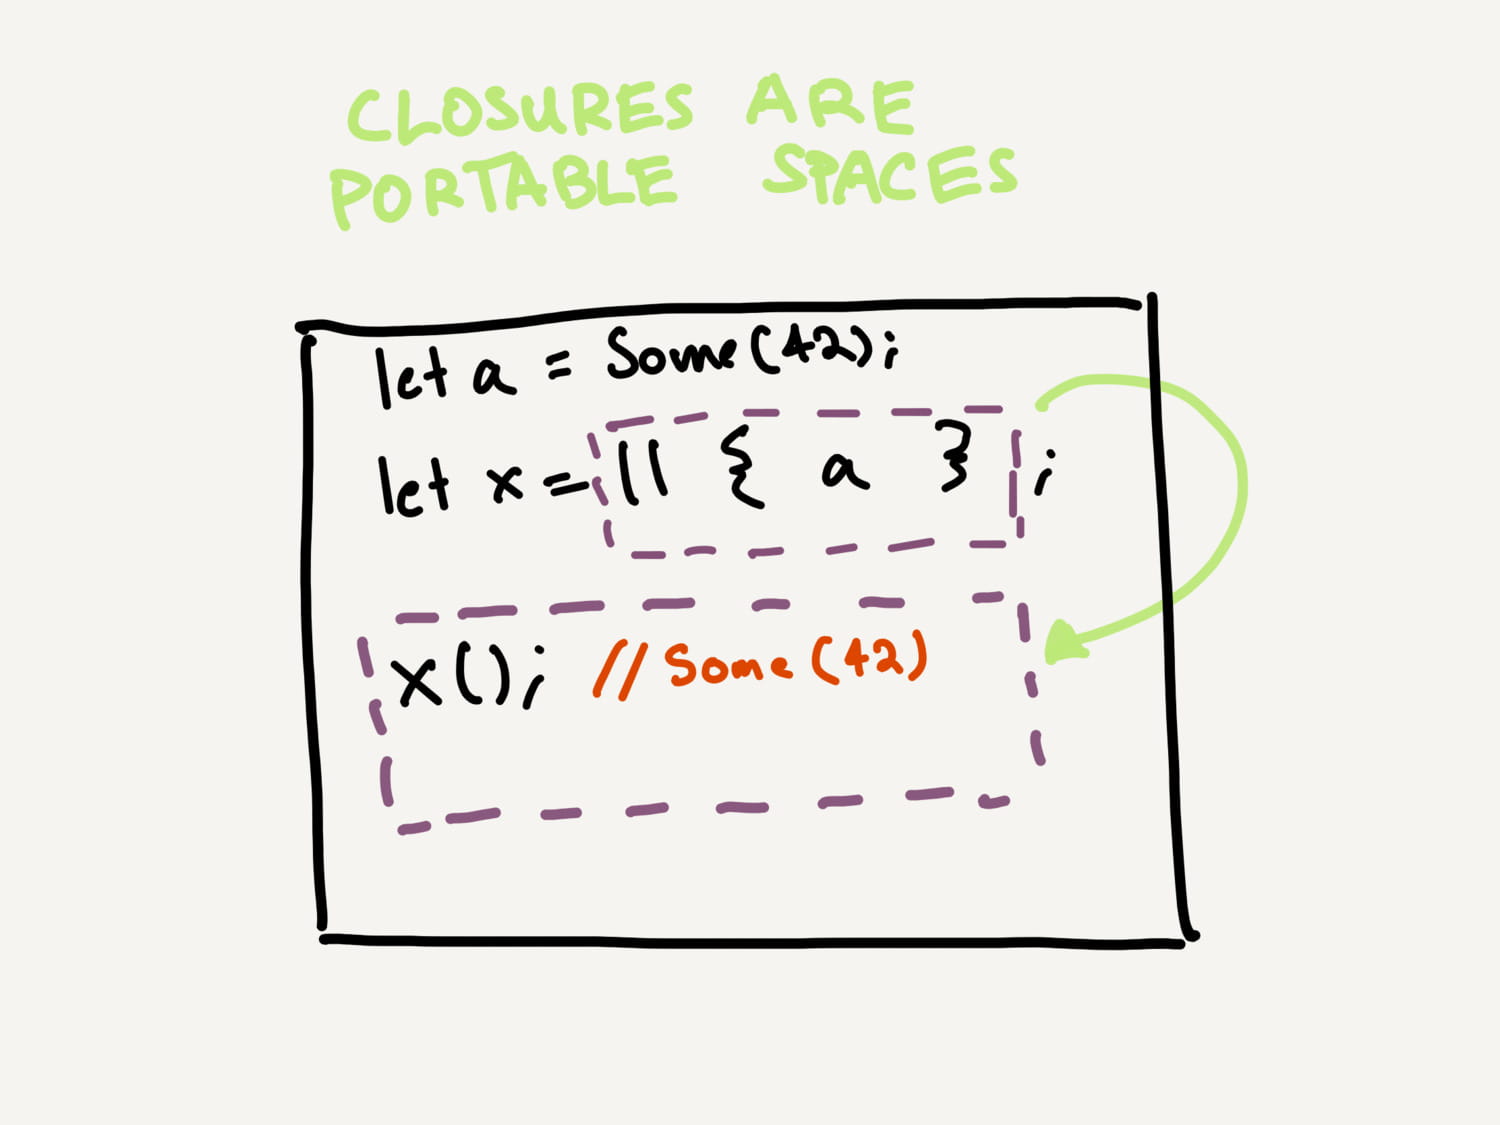 CLOSURES ARE
PORTABLE SPACES
let a = Some(42);
let x = || { a };
x(); // Some(42)